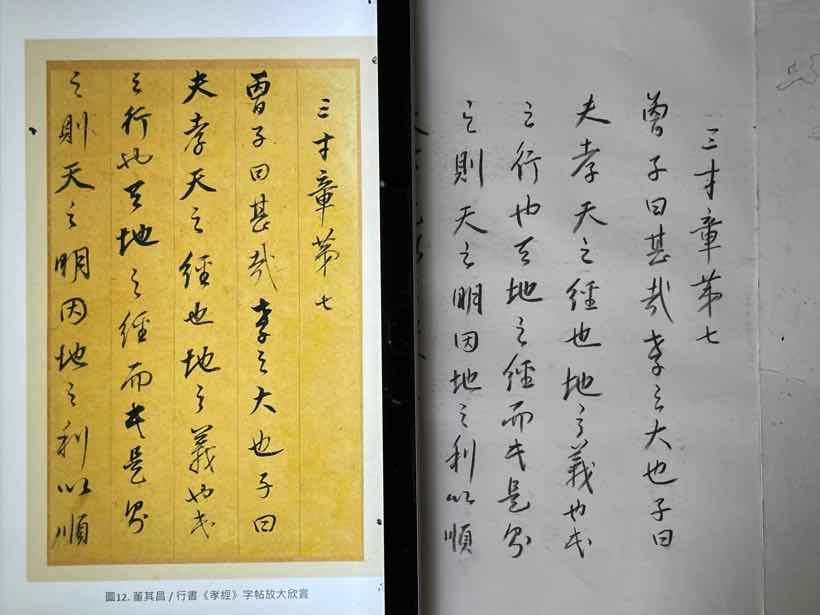 三才章第七
曾子曰甚哉孝之大也子曰
夫孝天之經也地之義也民
之行也天地之經而民是則
之則天之明因地之利以順
圖12. 董其昌 / 行書《孝經》字帖放大欣賞
三才章第七
曾子曰甚哉孝之大也子曰
夫孝天之經也地之義也民
之行也天地之經而民是則
之則天之明因地之利以順